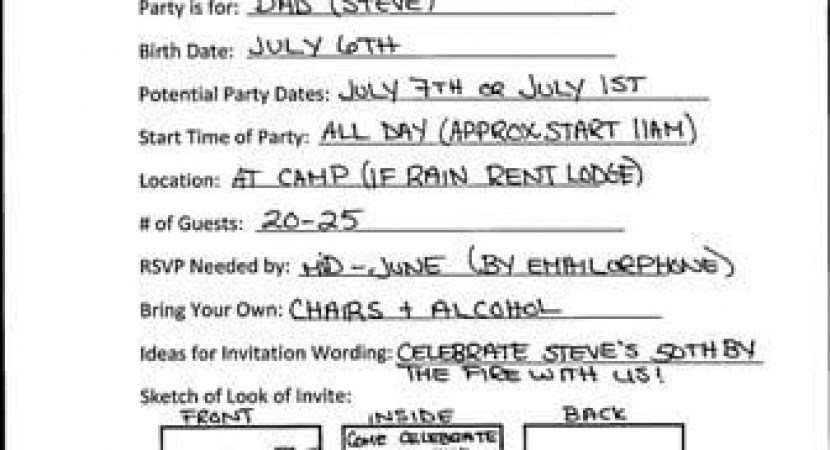 Party is for: DAD (STEVE)
Birth Date: JULY 6TH
Potential Party Dates: JULY 7TH OR JULY 1ST
Start Time of Party: ALL DAY (APPROX. START 11AM)
Location: AT CAMP (IF RAIN RENT LODGE)
# of Guests: 20-25
RSVP Needed by: MID-JUNE (BY EMAIL OR PHONE)
Bring Your Own: CHAIRS + ALCOHOL
Ideas for Invitation Wording: CELEBRATE STEVE'S 50TH BY
THE FIRE WITH US!
Sketch of Look of Invite:
FRONT INSIDE BACK
COME CELEBRATE